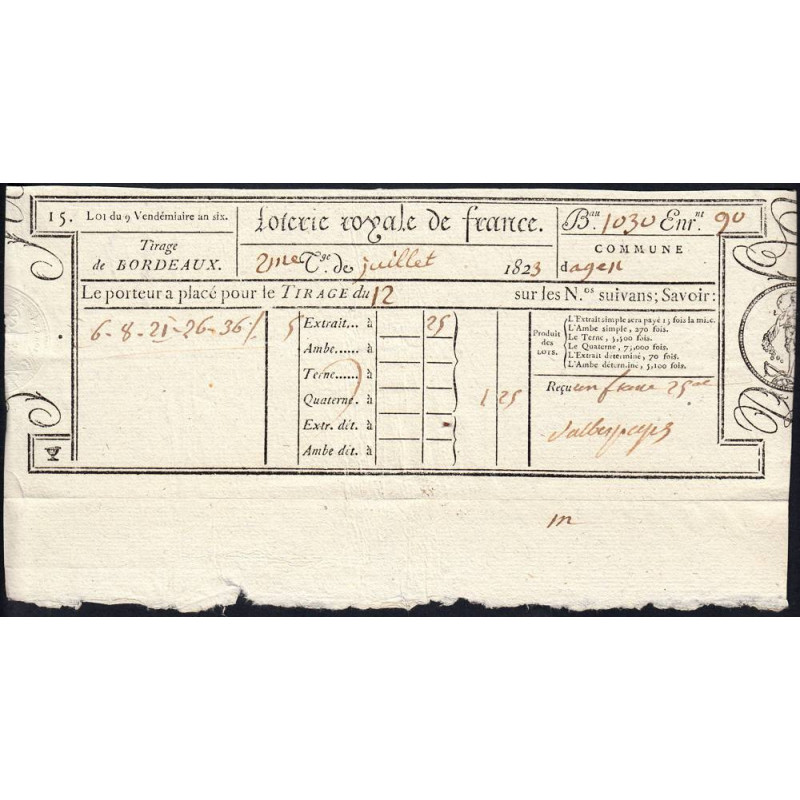 15. Loi du 9 Vendémiaire an six.
Tirage
de BORDEAUX.
Loterie royale de france.
2me T.ge de juillet 1823
B.au 1030 Enr.nt 90
COMMUNE
d agen
Le porteur a placé pour le TIRAGE du 12 sur les N.os suivans; Savoir:
6 - 8 - 21 - 26 - 36 / 5
Extrait... à 25
Ambe.... à
Terne...... à
Quaterne. à 1 25
Extr. dét. à
Ambe dét. à
Produit des LOTS.
L'Extrait simple sera payé 15 fois la mise.
L'Ambe simple, 270 fois.
Le Terne, 5,500 fois.
Le Quaterne, 75,000 fois.
L'Extrait déterminé, 70 fois.
L'Ambe déterminé, 5,100 fois.
Reçu un franc 25 ce
m